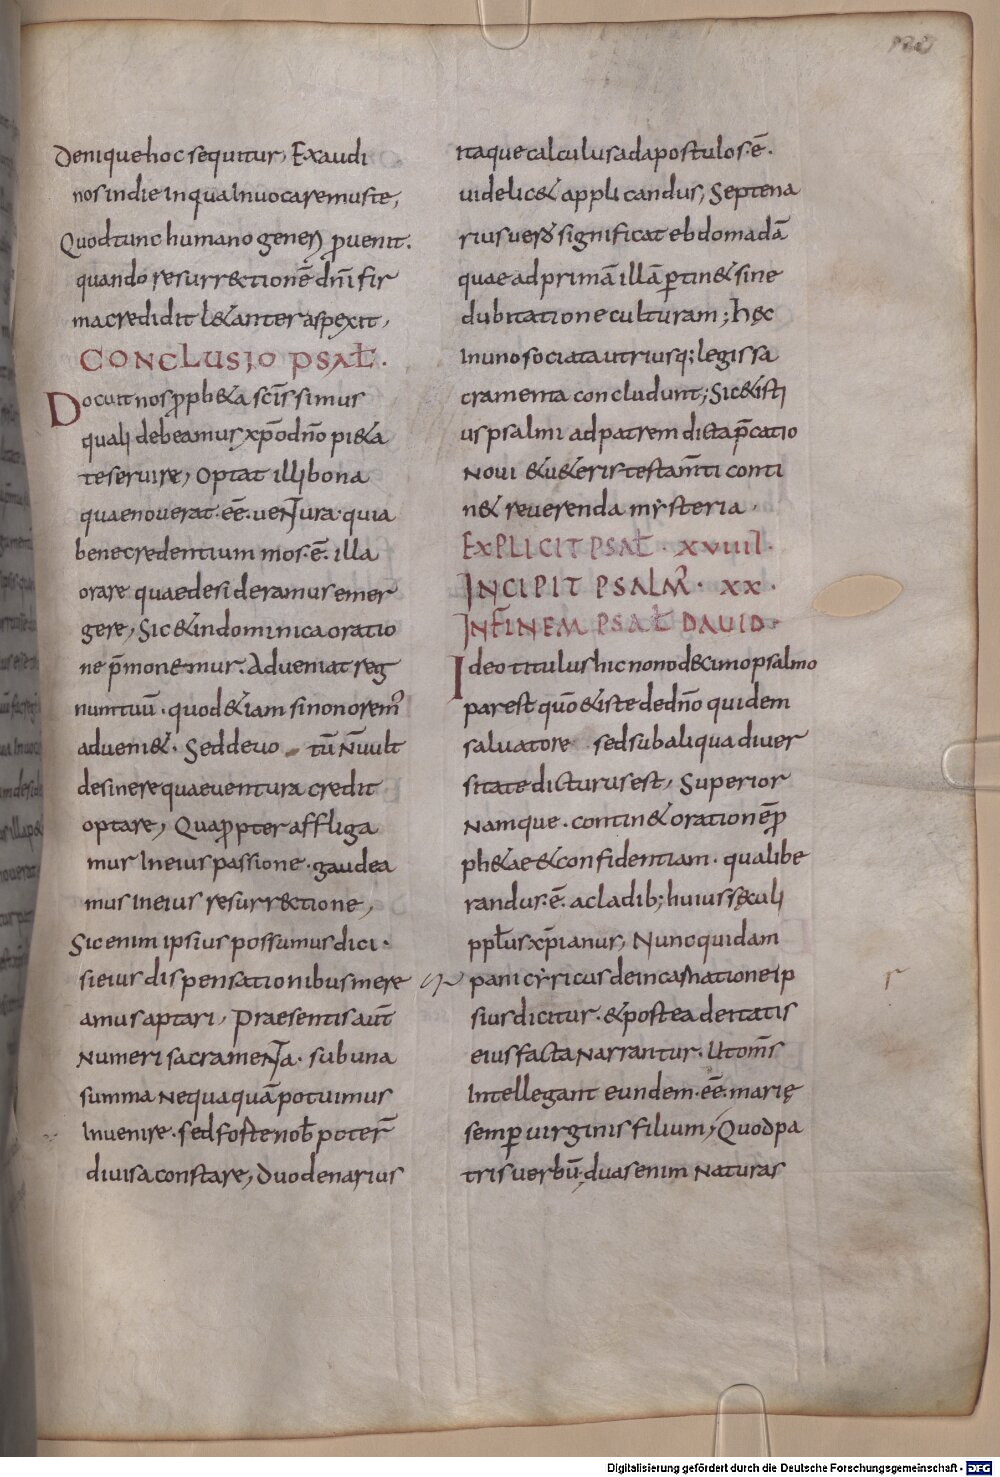 Denique hoc sequitur, Exaudi
nos in die in qua Inuocaremus te,
Quod tunc humano generi ꝓuenit.
quando resurr&tionē dn̄i fir
ma credidit l&anter aspexit,
CONCLUSIO PSAƚ.
Docuit nos ꝓph&a scīssimus
quali debeamus xp̄o dn̄o pi&a
te seruire, Optat illi bona
quae nouerat .ēē. uentura. quia
bene credentium mos .ē. illa
orare quae desideramus emer
gere, Sic & in dominica oratio
ne p̄mon&mur. Adueniat reg
num tuū. quod & iam si non orem̄
adueni&. Sed deuo tū N̄ uult
desinere quae uentura credit
optare, Quaꝓpter affliga
mur In eius passione. gaudea
mus In eius resurr&tione,
Sic enim ipsius possumus dici.
si eius dispensationibus mere
amus aptari, Praesentis aut̄
Numeri sacramenta. sub una
summa Nequaquā potuimus
Inuenire. sed foste nob̄ poter̄
diuisa constare, Duodenarius
itaque calculus ad apostulos .ē.
uidelic& applicandus, Septena
rius uero significat ebdomadā
quae ad primā illā ꝑtin& sine
dubitatione culturam; hęc
In uno sociata utriusq; legis sa
cramenta concludunt; Sic & isti
us psalmi ad patrem dicta p̄catio
Noui & u&eris testam̄ti conti
n& reuerenda mẏsteria.
EXPLICIT PSAƚ. XVIIII.
INCIPIT PSALM̄. XX.
IN FINEM PSAƚ DAUID.
Ideo titulus hic nonodecimo psalmo
par est quō & iste de dn̄o quidem
saluatore sed sub aliqua diuer
sitate dicturus est, Superior
Namque. contin& orationē ꝓ
ph&ae & confidentiam. qua libe
randus .ē. a cladib; huius sęculi
ppƚus xp̄ianus, Nunc quidam
panicẏricus de incarnatione ip
sius dicitur. & postea deitatis
eius facta Narrantur. Ut om̄s
Intellegant eundem .ēē. marię
semꝑ uirginis filium, Quod pa
tris uerbū; duas enim Naturas
Digitalisierung gefördert durch die Deutsche Forschungsgemeinschaft - DFG